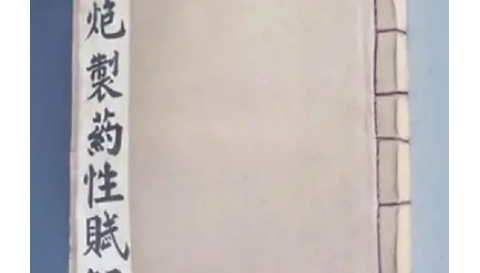 炮製药性賦